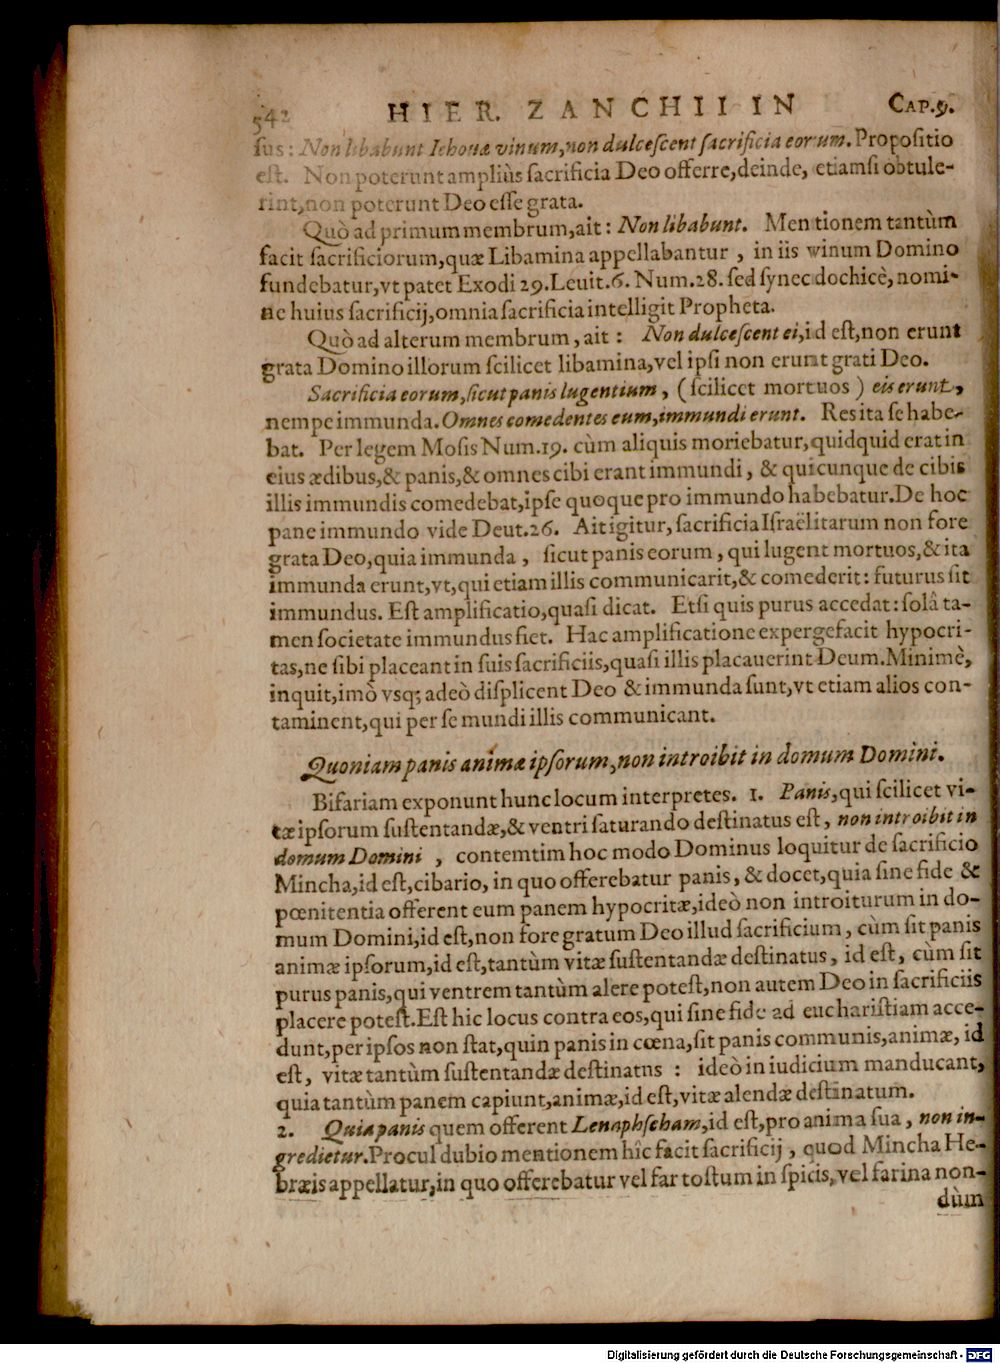 542 HIER. ZANCHII IN CAP.9.
ſus: Non libabunt Iehouæ vinum,non dulceſcent ſacrificia eorum. Propoſitio
eſt. Non poterunt ampliùs ſacrificia Deo offerre,deinde, etiamſi obtule-
rint,non poterunt Deo eſſe grata.
Quò ad primum membrum,ait: Non libabunt. Mentionem tantùm
facit ſacrificiorum,quæ Libamina appellabantur , in iis winum Domino
fundebatur,vt patet Exodi 29.Leuit.6. Num.28. ſed ſynecdochicè, nomi-
ne huius ſacrificij,omnia ſacrificia intelligit Propheta.
Quò ad alterum membrum, ait : Non dulceſcent ei,id eſt,non erunt
grata Domino illorum ſcilicet libamina,vel ipſi non erunt grati Deo.
Sacrificia eorum,ſicut panis lugentium, (ſcilicet mortuos) eis erunt,
nempe immunda. Omnes comedentes eum,immundi erunt. Res ita ſe habe-
bat. Per legem Moſis Num.19. cùm aliquis moriebatur,quidquid erat in
eius ædibus,& panis,& omnes cibi erant immundi, & quicunque de cibis
illis immundis comedebat,ipſe quoque pro immundo habebatur.De hoc
pane immundo vide Deut.26. Ait igitur, ſacrificia Iſraëlitarum non fore
grata Deo,quia immunda , ſicut panis eorum, qui lugent mortuos,& ita
immunda erunt,vt,qui etiam illis communicarit,& comederit: futurus ſit
immundus. Eſt amplificatio,quaſi dicat. Etſi quis purus accedat: ſolâ ta-
men ſocietate immundus fiet. Hac amplificatione expergefacit hypocri-
tas,ne ſibi placeant in ſuis ſacrificiis,quaſi illis placauerint Deum.Minimè,
inquit,imò vsq; adeò diſplicent Deo & immunda ſunt,vt etiam alios con-
taminent,qui per ſe mundi illis communicant.
Quoniam panis animæ ipſorum,non introibit in domum Domini.
Bifariam exponunt hunc locum interpretes. 1. Panis,qui ſcilicet vi-
tæ ipſorum ſuſtentandæ,& ventri ſaturando deſtinatus eſt, non introibit in
domum Domini , contemtim hoc modo Dominus loquitur de ſacrificio
Mincha,id eſt,cibario, in quo offerebatur panis, & docet,quia ſine fide &
pœnitentia offerent eum panem hypocritæ,ideò non introiturum in do-
mum Domini,id eſt,non fore gratum Deo illud ſacrificium, cùm ſit panis
animæ ipſorum,id eſt,tantùm vitæ ſuſtentandæ deſtinatus, id eſt, cùm ſit
purus panis,qui ventrem tantùm alere poteſt,non autem Deo in ſacrificiis
placere poteſt.Eſt hic locus contra eos,qui ſine fide ad euchariſtiam acce-
dunt,per ipſos non ſtat,quin panis in cœna,ſit panis communis,animæ, id
eſt, vitæ tantùm ſuſtentandæ deſtinatus : ideò in iudicium manducant,
quia tantùm panem capiunt,animæ,id eſt,vitæ alendæ deſtinatum.
2. Quia panis quem offerent Lenaphſcham,id eſt,pro anima ſua , non in-
gredietur.Procul dubio mentionem hîc facit ſacrificij, quod Mincha He-
bræis appellatur,in quo offerebatur vel far toſtum in ſpicis, vel farina non-
dùm
Digitalisierung gefördert durch die Deutsche Forschungsgemeinschaft - DFG